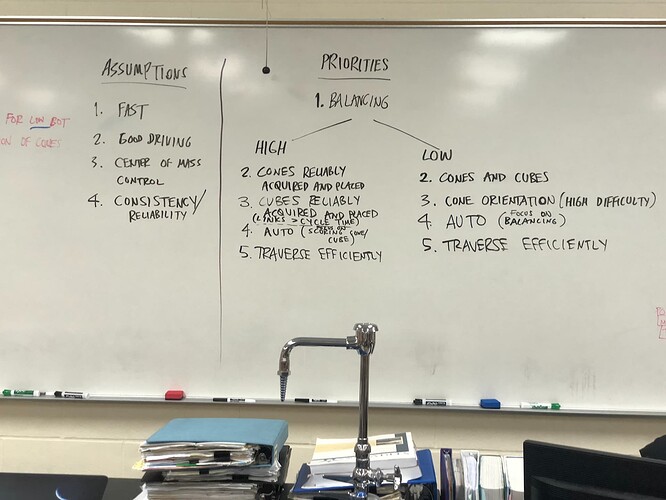 FOR LOW BOT
ON OF CONES
ASSUMPTIONS
1. FAST
2. GOOD DRIVING
3. CENTER OF MASS
CONTROL
4. CONSISTENCY/
RELIABILITY
PRIORITIES
1. BALANCING
HIGH
2. CONES RELIABLY
ACQUIRED AND PLACED
3. CUBES RELIABLY
ACQUIRED AND PLACED
(LINKS > CYCLE TIME)
4. AUTO (FOCUS ON
SCORING CONE/
CUBE)
5. TRAVERSE EFFICIENTLY
LOW
2. CONES AND CUBES
3. CONE ORIENTATION (HIGH DIFFICULTY)
4. AUTO (FOCUS ON
BALANCING)
5. TRAVERSE EFFICIENTLY